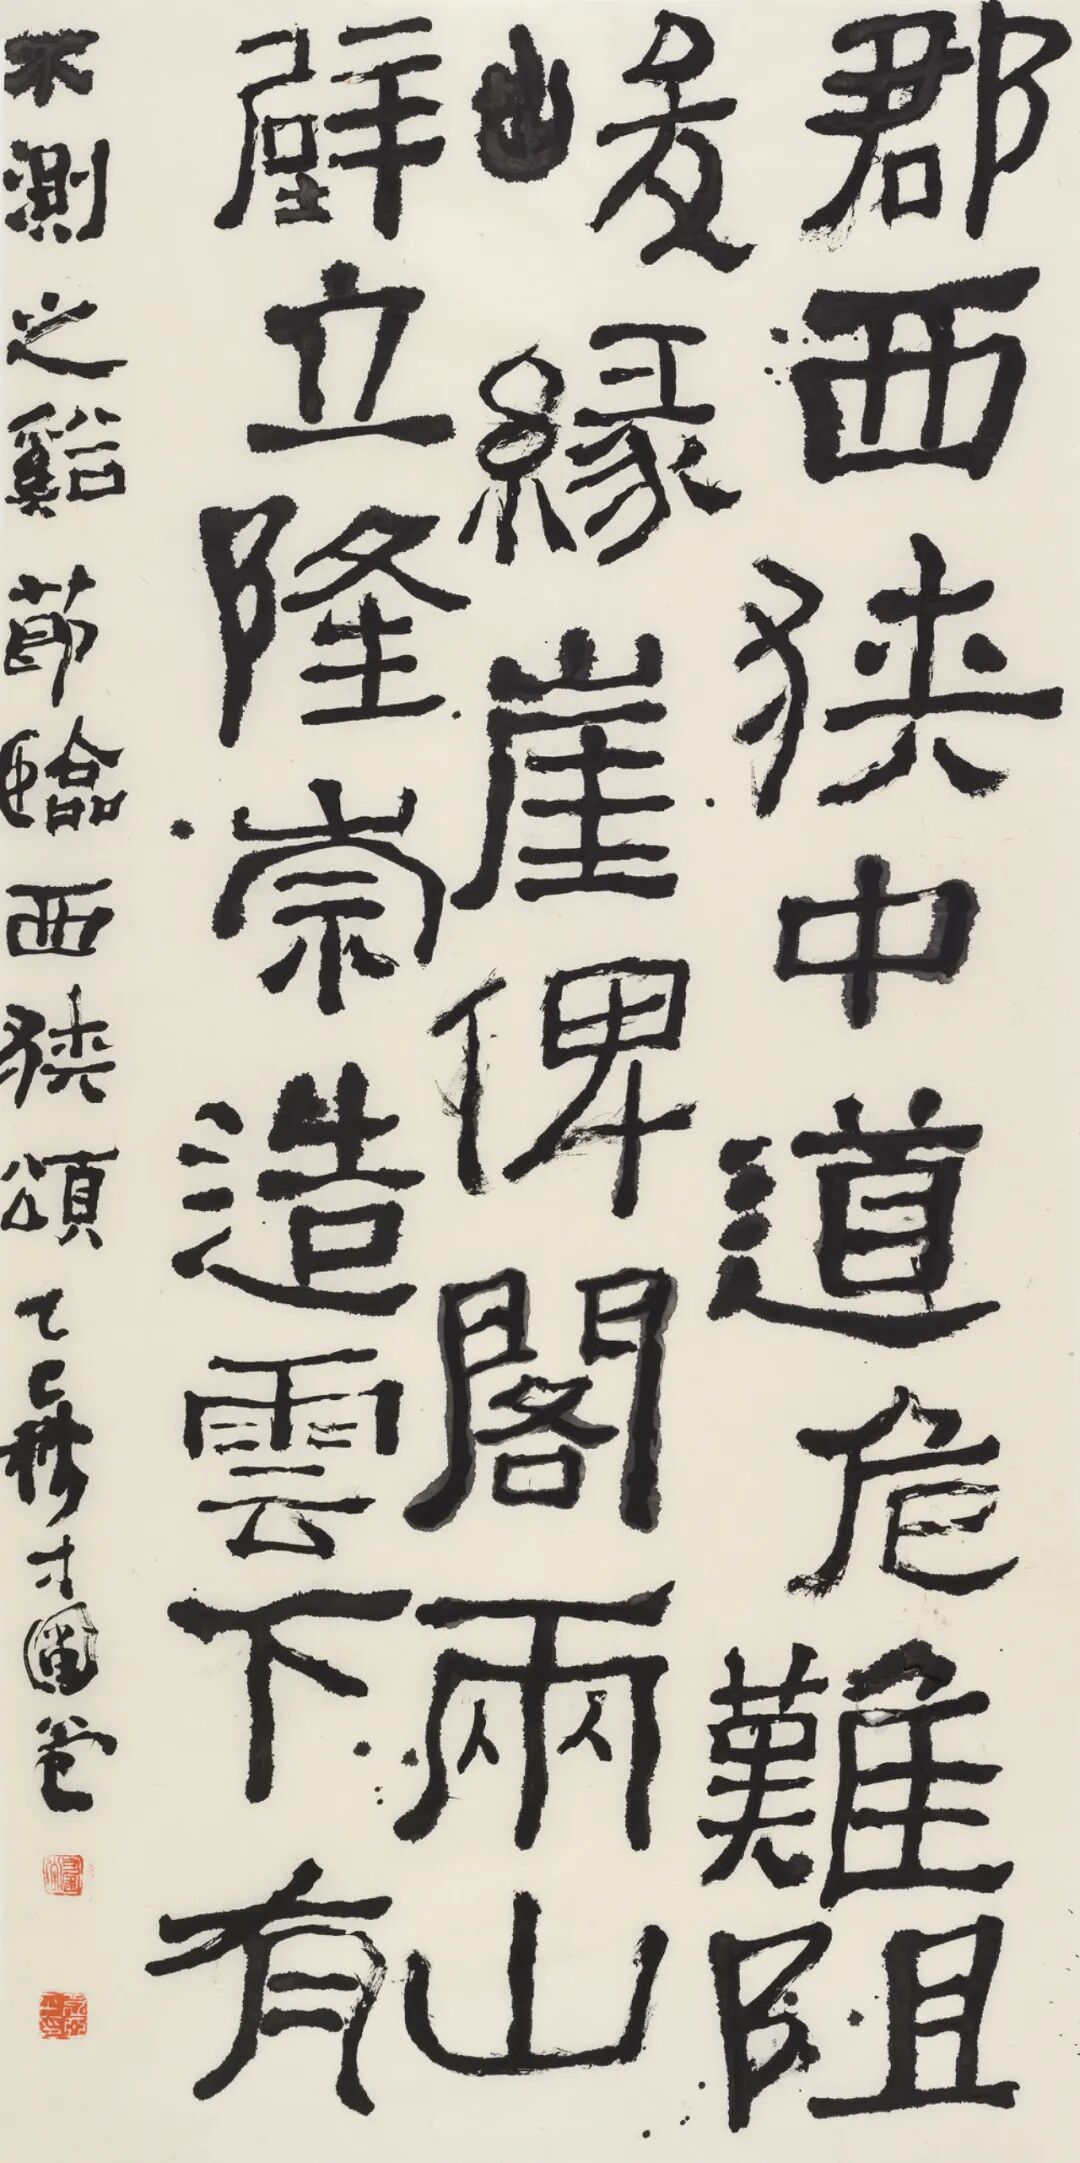 郡西狹中道危難阻
峻緣崖俾閣兩山
壁立隆崇造雲下有
不測之谿節臨西狹頌乙巳